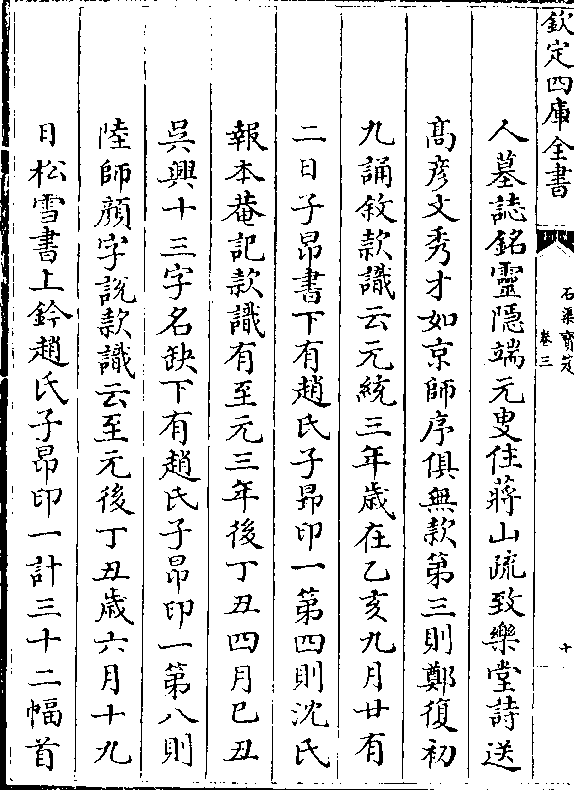 欽定四庫全書
石渠寶笈
卷三
十
人墓誌銘靈隠端元叟住蔣山疏致樂堂詩送
髙彦文秀才如京師序俱無款第三則鄭復初
九誦敘款識云元統三年歲在乙亥九月廿有
二日子昂書下有趙氏子昂印一第四則沈氏
報本菴記款識有至元三年後丁丑四月已丑
吳興十三字名缺下有趙氏子昂印一第八則
陸師顔字説款識云至元後丁丑歲六月十九
日松雪書上鈐趙氏子昂印一計三十二幅首